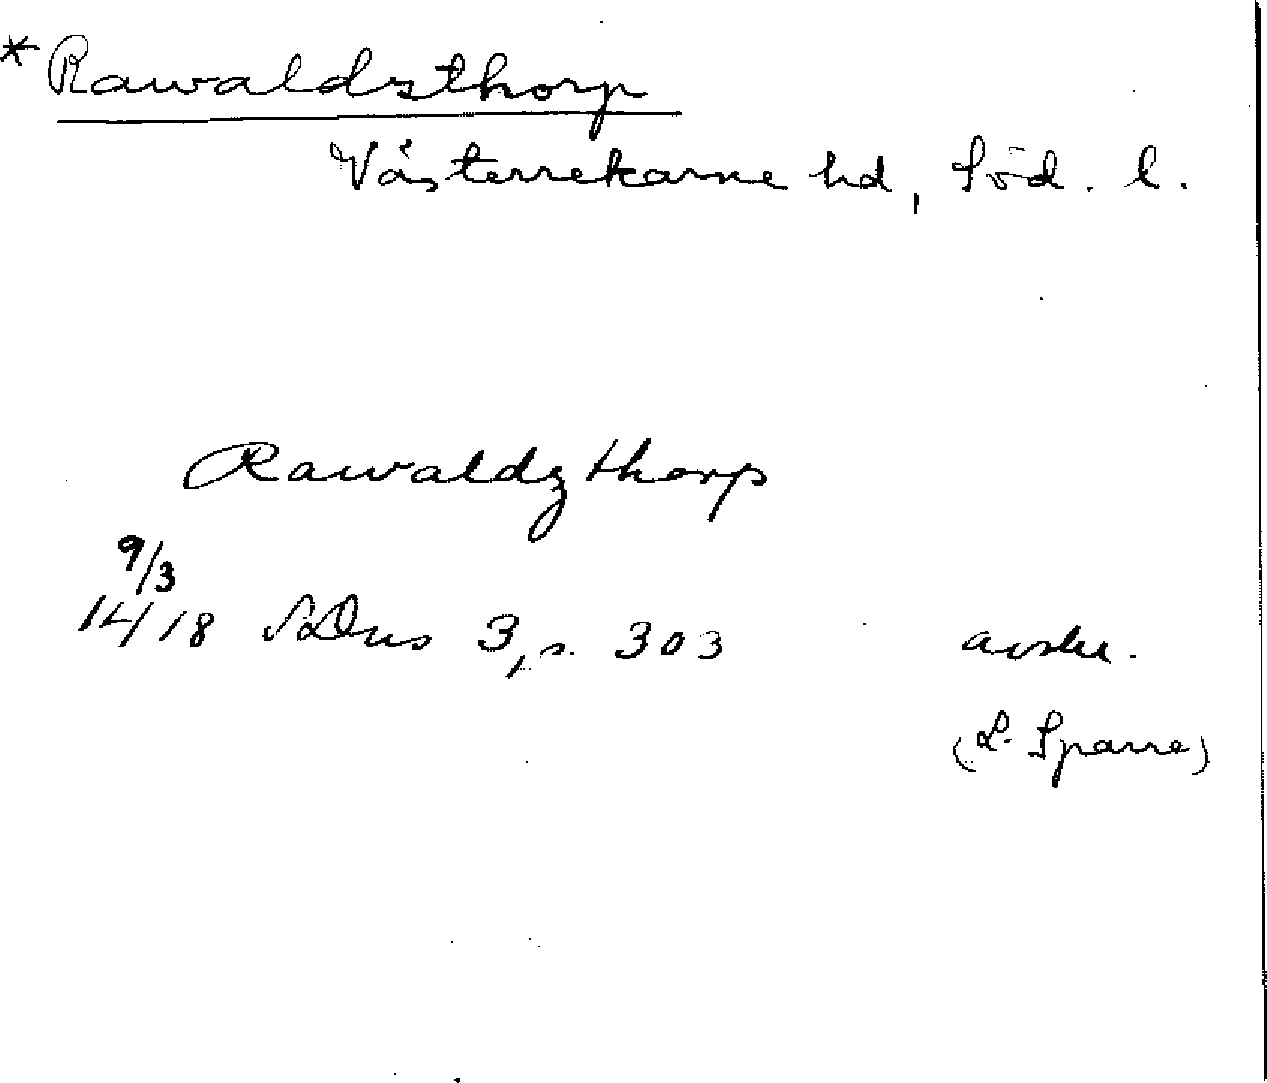 *Rawaldsthorp
Västerrekarne hd, Söd. l.
Rawaldzthorp
9/3
1418 SDns 3, s. 303 avskr.
(L. Sparre)